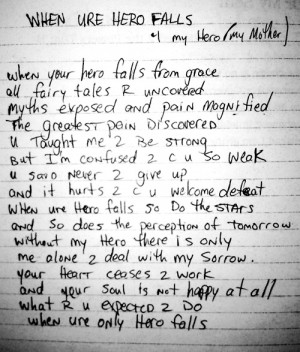 WHEN URE HERO FALLS
4 my Hero (my Mother)
when your hero falls from grace
all fairy tales R uncovered
Myths exposed and pain magnified
The greatest pain Discovered
u Taught me 2 Be strong
But I'm confused 2 c u so weak
u said never 2 give up
and it hurts 2 c u welcome defeat
when ure Hero falls so Do the stars
and so does the perception of tomorrow
without my Hero there is only
me alone 2 deal with my Sorrow.
your Heart ceases 2 work
and your soul is not happy at all
what R u expected 2 Do
when ure only Hero falls